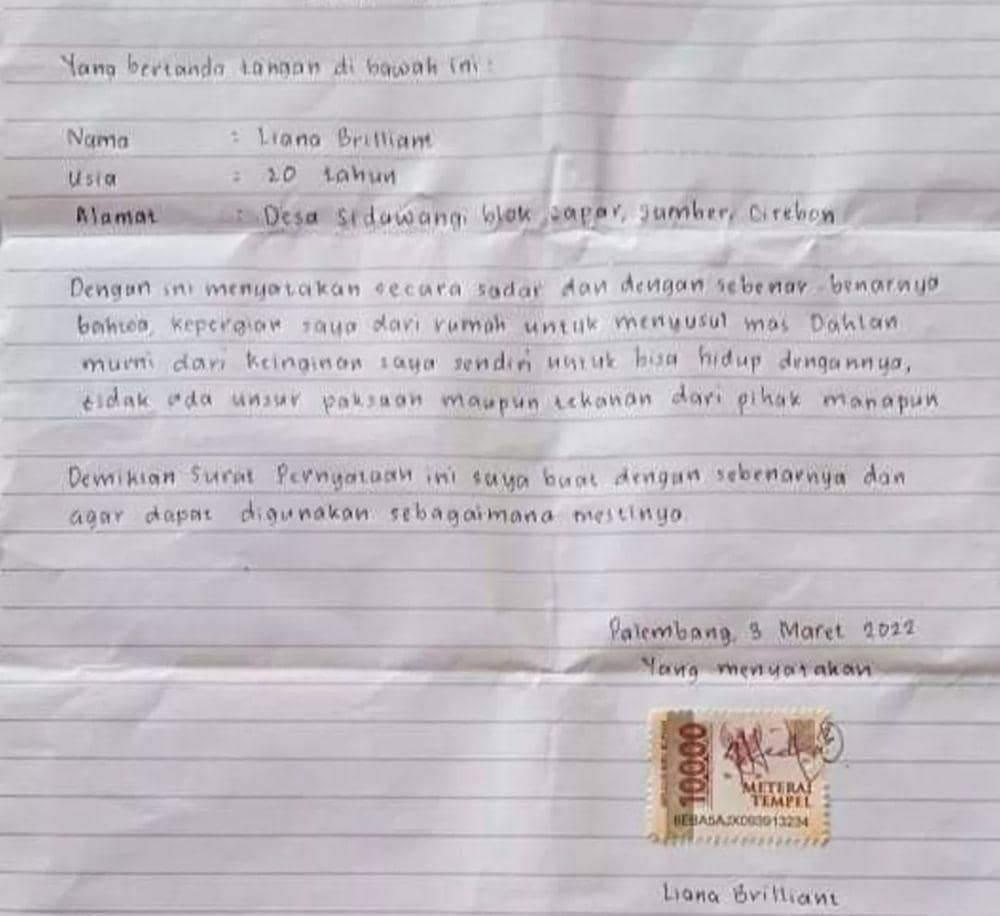 Yang bertanda tangan di bawah ini :
Nama : Liana Brilliant
Usia : 20 tahun
Alamat : Desa Sidawangi blok sapar, Sumber, Cirebon
Dengan ini menyatakan secara sadar dan dengan sebenar-benarnya
bahwa, kepergian saya dari rumah untuk menyusul mas Dahlan
murni dari keinginan saya sendiri untuk bisa hidup dengannya,
tidak ada unsur paksaan maupun tekanan dari pihak manapun
Demikian Surat Pernyataan ini saya buat dengan sebenarnya dan
agar dapat digunakan sebagaimana mestinya
Palembang, 3 Maret 2022
Yang menyatakan
10000
METERAI
TEMPEL
Liana Brilliant